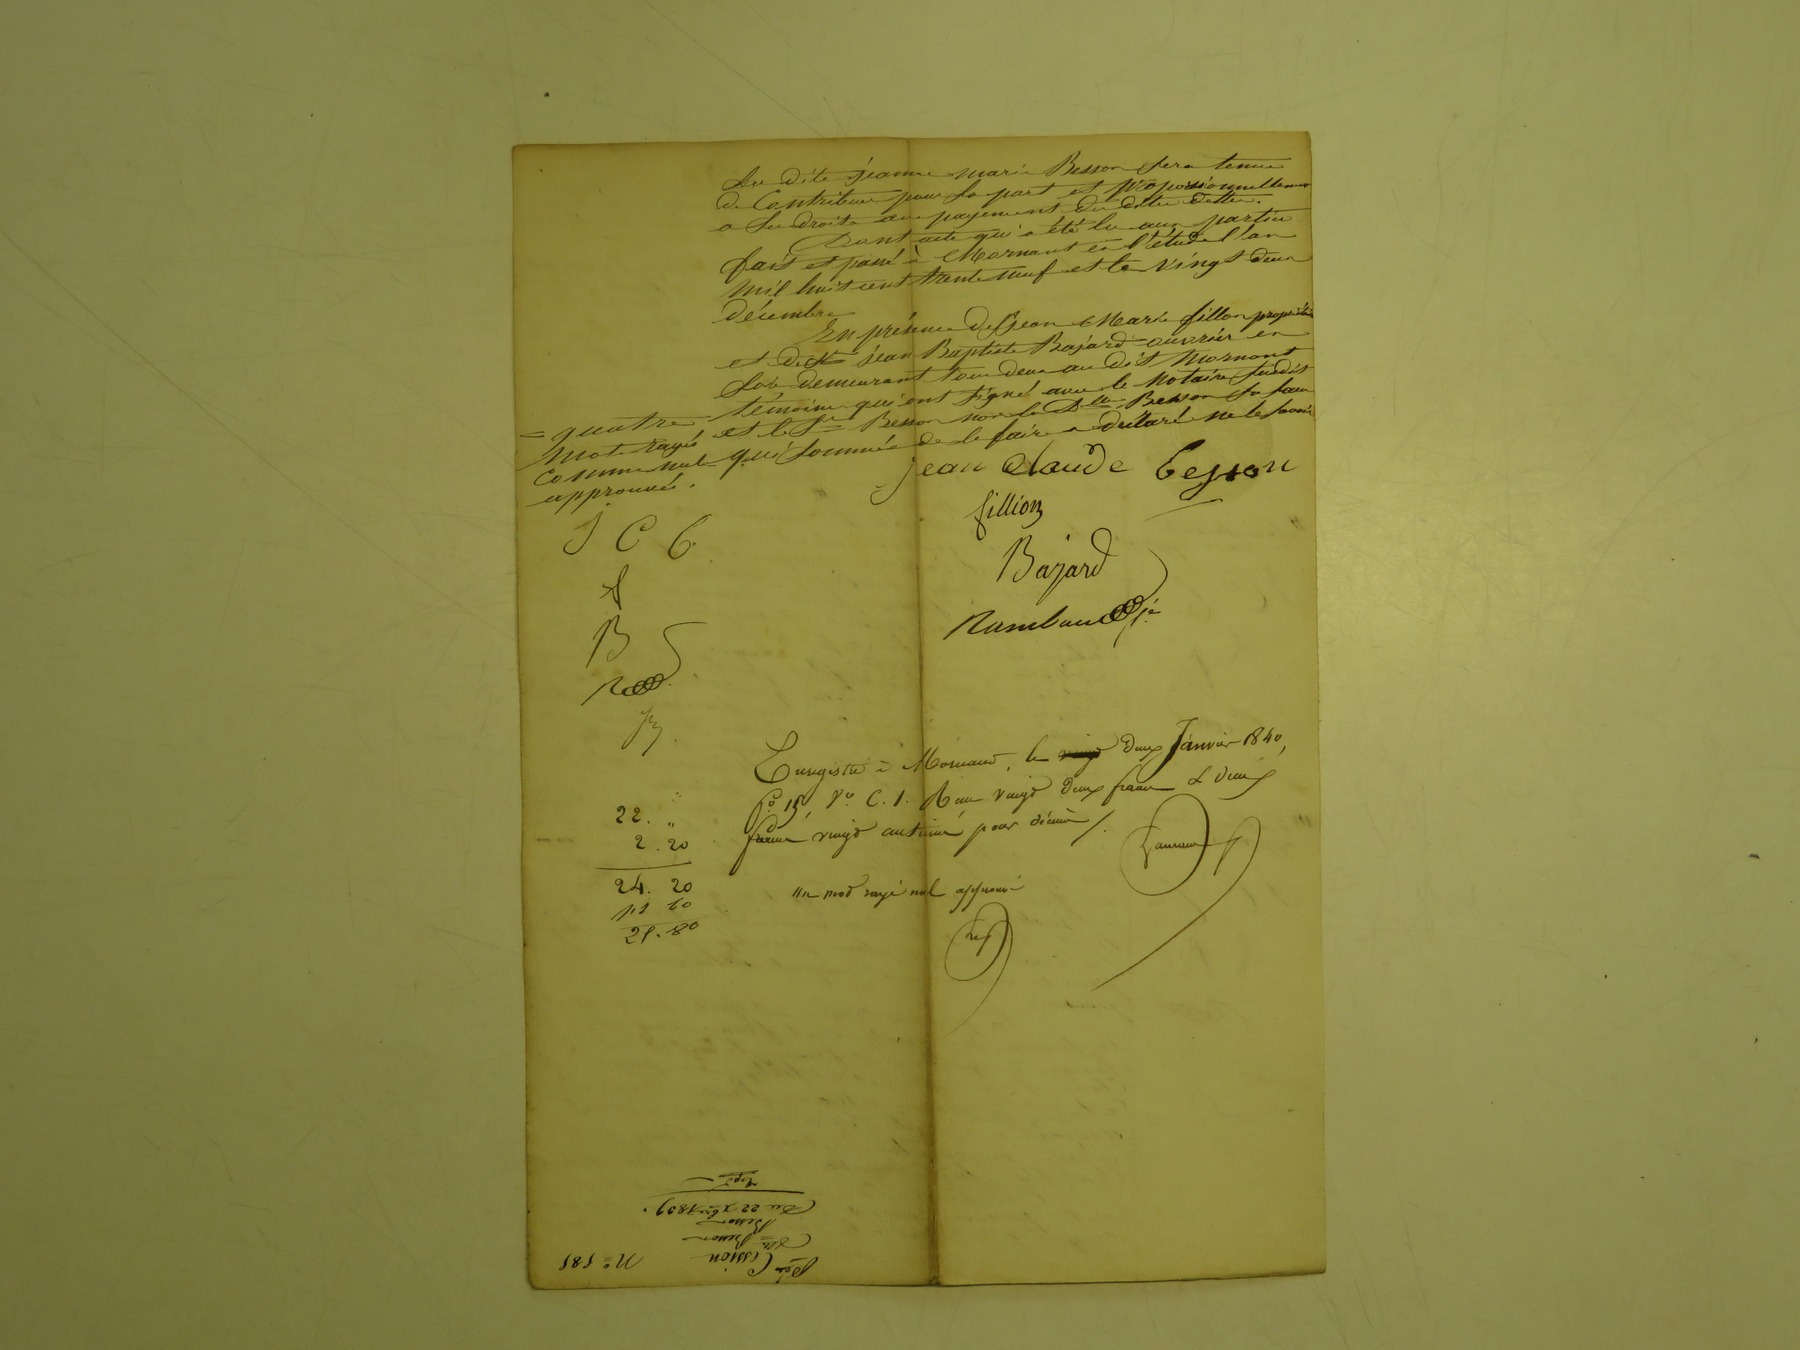 La dite jeanne marie Besson sera tenue
de Contribuer pour sa part et proporsionnellement
a ses droits au payement des dittes dettes.
Dont acte qui a été lu aux parties
fait et passé à Mornant en l'étude l'an
mil huit cent trente neuf et le vingt deux
décembre
En présence de Jean Marie fillon propriétaire
et de jean Baptiste Bajard ouvrier en
demeurant tous deux au dit Mornant
témoins qui ont signé avec le Notaire susdit
et le Sr Besson non la Dlle Besson sa sœur
qui sommée de le faire a déclaré ne le savoir
= quatre
Mots rayés
comme nuls
approuvés.
jean claude besson
fillion
Bajard
Rambaud
J C b
f
B
R
Enregistré à Mornand, le vingt Deux Janvier 1840,
fo 15 Vo C. 1. Reçu vingt Deux francs & Deux
francs vingt centimes pour décime
un mot rayé nul approuvé
22. "
2. 20
24. 20
N° 581
Cession
Dlle Besson
Besson
Du 22 Xbre 1839.
Expd